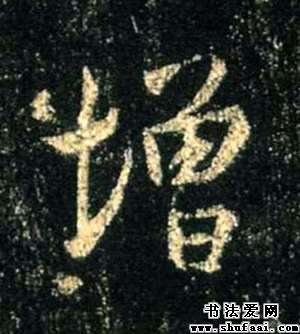 增
书法爱网
www.shufaai.com